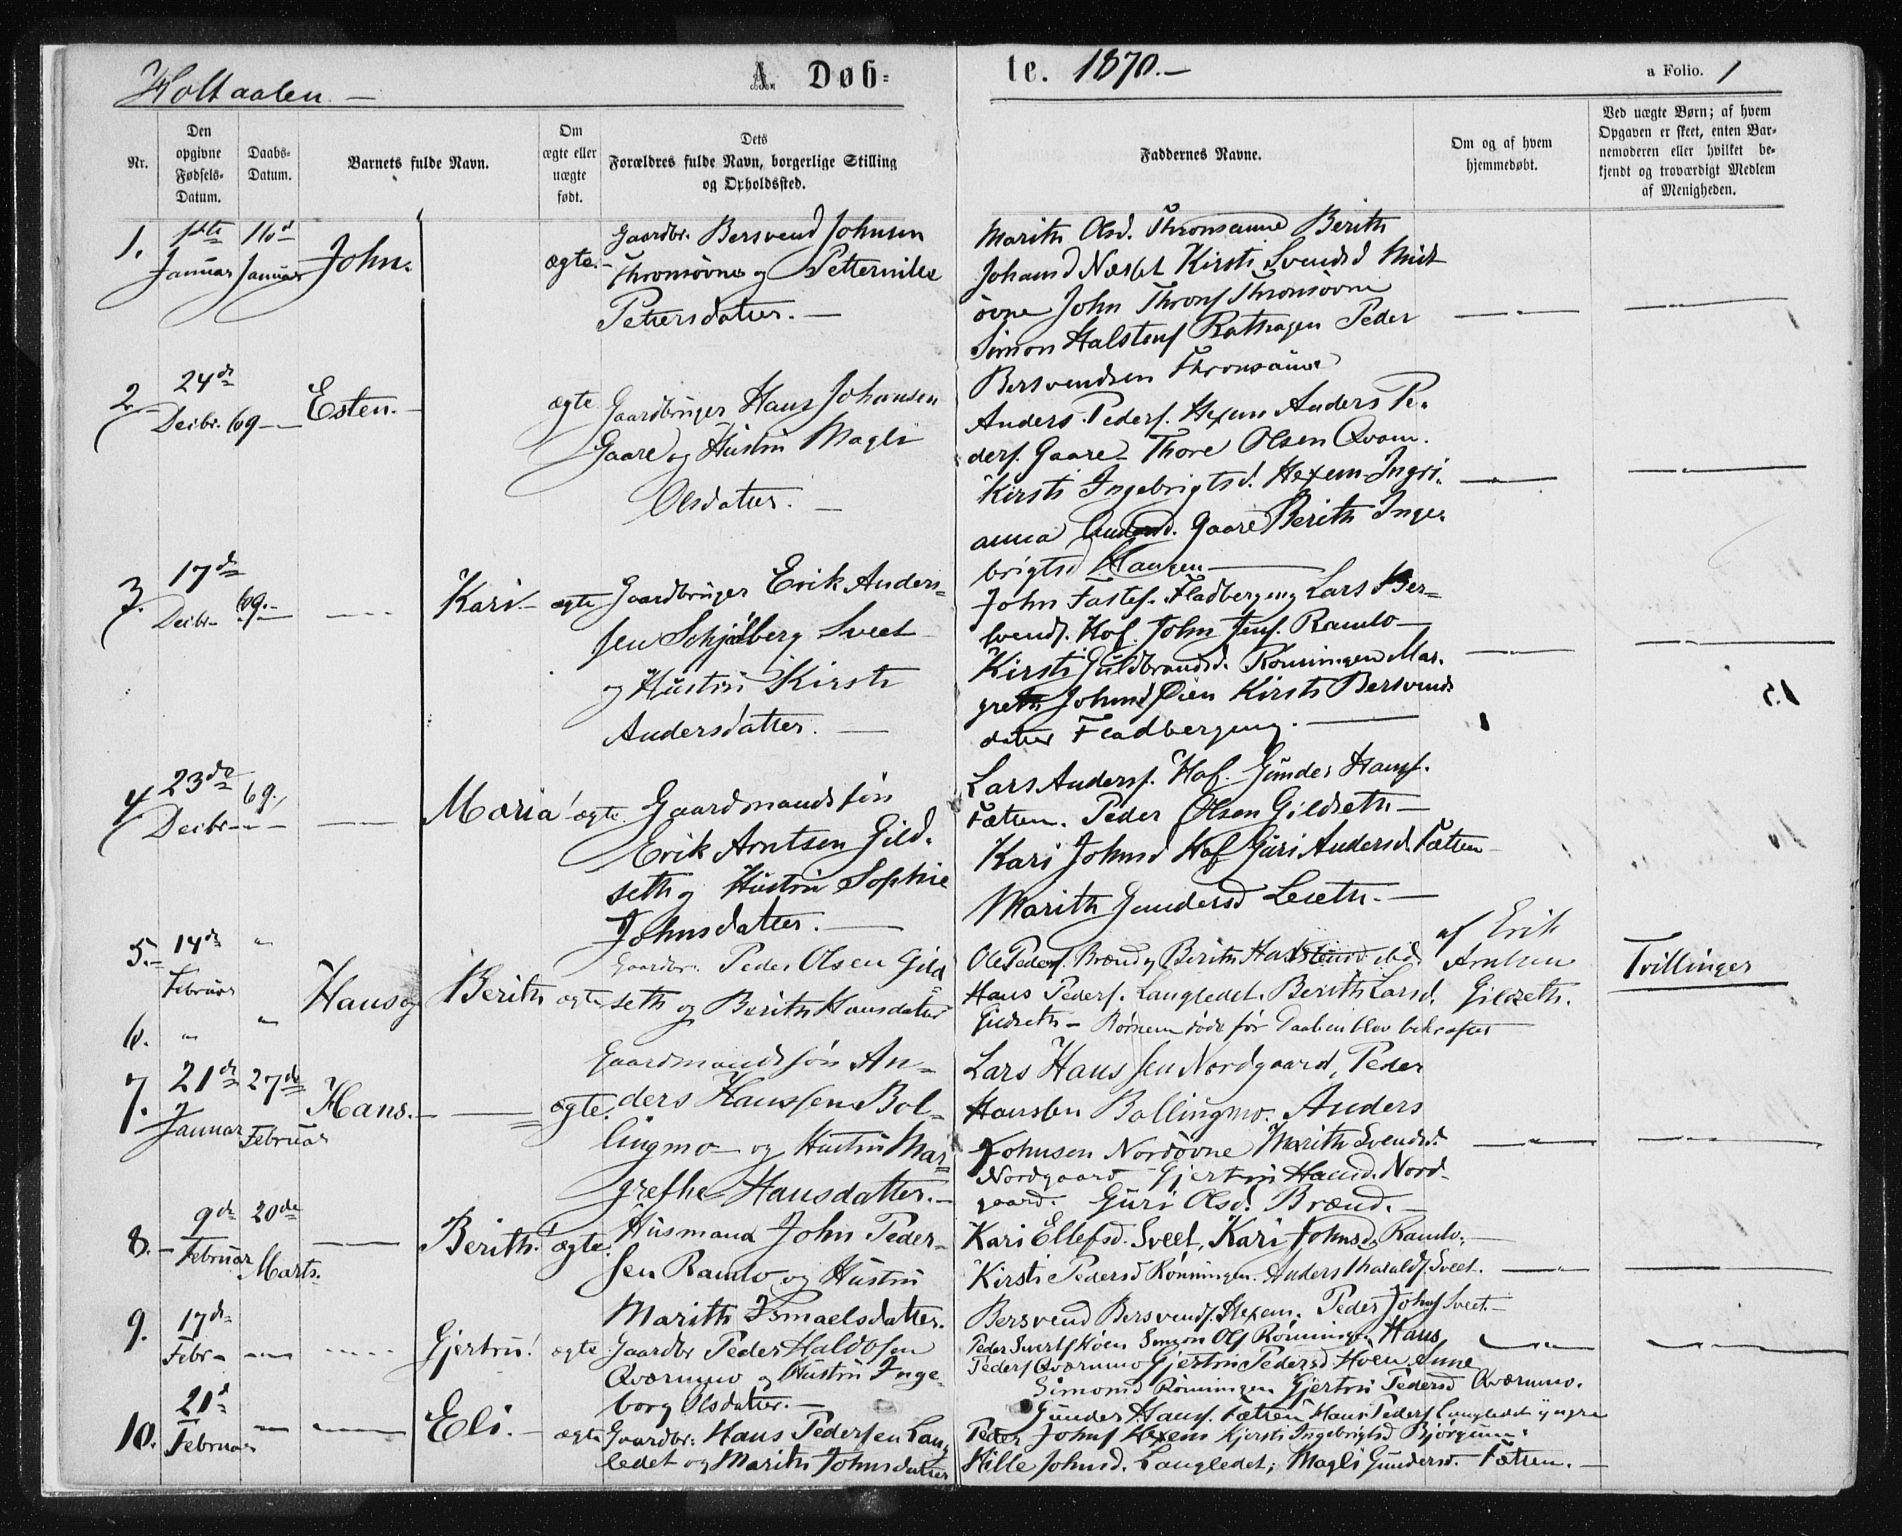 Holtaalen.—
A. Døb-
te. 1870.—
a Folio. 1
Nr.
Den opgivne Fødsels-Datum.
Daabs-Datum.
Barnets fulde Navn.
Om ægte eller uægte født.
Dets Forældres fulde Navn, borgerlige Stilling og Opholdssted.
Faddernes Navne.
Om og af hvem hjemmedøbt.
Ved uægte Børn; af hvem Opgaven er skeet, enten Barnemoderen eller hvilket bekjendt og troværdigt Medlem af Menigheden.
1. 1ste Januar 16d Januar John. ægte.
Gaardbr. Bersvend Johnsen
Thronsøvne og Petternille
Petersdatter.—
Marith Olsd. Berith
Johansd Næsset Kirsti Svendsd Midt
øvne John Thronsøvne
Simon Halstens Peder
Bersvendsen
2. 24de Decbr. 69 Esten. ægte
Gaardbruger Hans Johansen
Gaare og Hustru Magli
Olsdatter.—
Anders Peders. Hexem Anders Pe-
ders. Gaare. Thore Olsen Qvam.
Kirsti Ingebrigtsd. Hexem Ingri-
anna Gaare Berith Inge-
brigtsd Haugen
3. 17de Decbr. 69. Kari. ægte
Gaardbruger Erik Anders-
sen Schjølberg Sveet
og Hustru Kirsti
Andersdatter.—
John Lars Ber-
svends. Hof. John Jens. Ramlo
Kirsti Guldbrandsd. Rønningen Mar-
greth Johnsd Øien Kirsti Bersvends
datter Fladbergeng.
4. 23de Decbr 69. Maria ægte
Gaardmandssøn
Erik Arntsen Gild-
seth og Hustru Sophie
Johnsdatter.—
Lars Anders. Hof. Gunder Hans.
Fætten. Peder Olsen Gildseth—
Kari Johnsd Hof Guri Andersd. Fætten
Marith Gundersd Leseth.—
5. 14de Februar
6. " "
Hans og Berith ægte
Gaardbr. Peder Olsen Gild
seth og Berith Hansdatter
Ole Peders. Brænd og Berith ibid.
Hans Peders. Langledet. Berith Larsd.
Gildseth— Børnene døde før Daaben blev bekræftet
af Erik
Arntsen
Gildseth.
Tvillinger
7. 21de Januar 27de Februar Hans. ægte.
Gaardmandssøn An-
ders Hanssen Bol-
lingmo og Hustru Mar-
grethe Hansdatter.—
Lars Hanssen Nordgaard, Peder
Hansen Bollingmo. Anders
Johnsen Nordøvne Marith Svendsd.
Nordgaard Gjertru Hansd. Nord-
gaard. Guri Olsd. Brænd.—
8. 9de Februar 20de Marts. Berith! ægte.
Husmand John Peder-
sen Ramlo og Hustru
Marith Ismaelsdatter.
Kari Ellefsd. Sveet, Kari Johnsd. Ramlo.
Kirsti Pedersd Rønningen. Anders Haralds. Sveet.
Bersvend Bersvends. Hexem. Peder Johns Sveet.—
9. 17de Febr. Gjertru! ægte
Gaardbr Peder Haldosen
Qværnmo og Hustru Inge-
borg Olsdatter.—
Peder Siverts Hoen Simon Ols Rønningen. Hans
Peders Qværnmo Gjertru Pedersd Hoen
Simonsd Rønningen Gjertru Pedersd Qværnmo.
10. 21d Februar Eli. ægte
Gaardbr. Hans Pedersen Lang
ledet og Marith Johnsdatter
Gunder Hans. Fætten Hans Peders Langledet yngre
Peder Johns Hexem Kjersti Ingebrigtsd Bjørgum
Hille Johnsd. Langledet, Magli Gundersd. Fætten.—